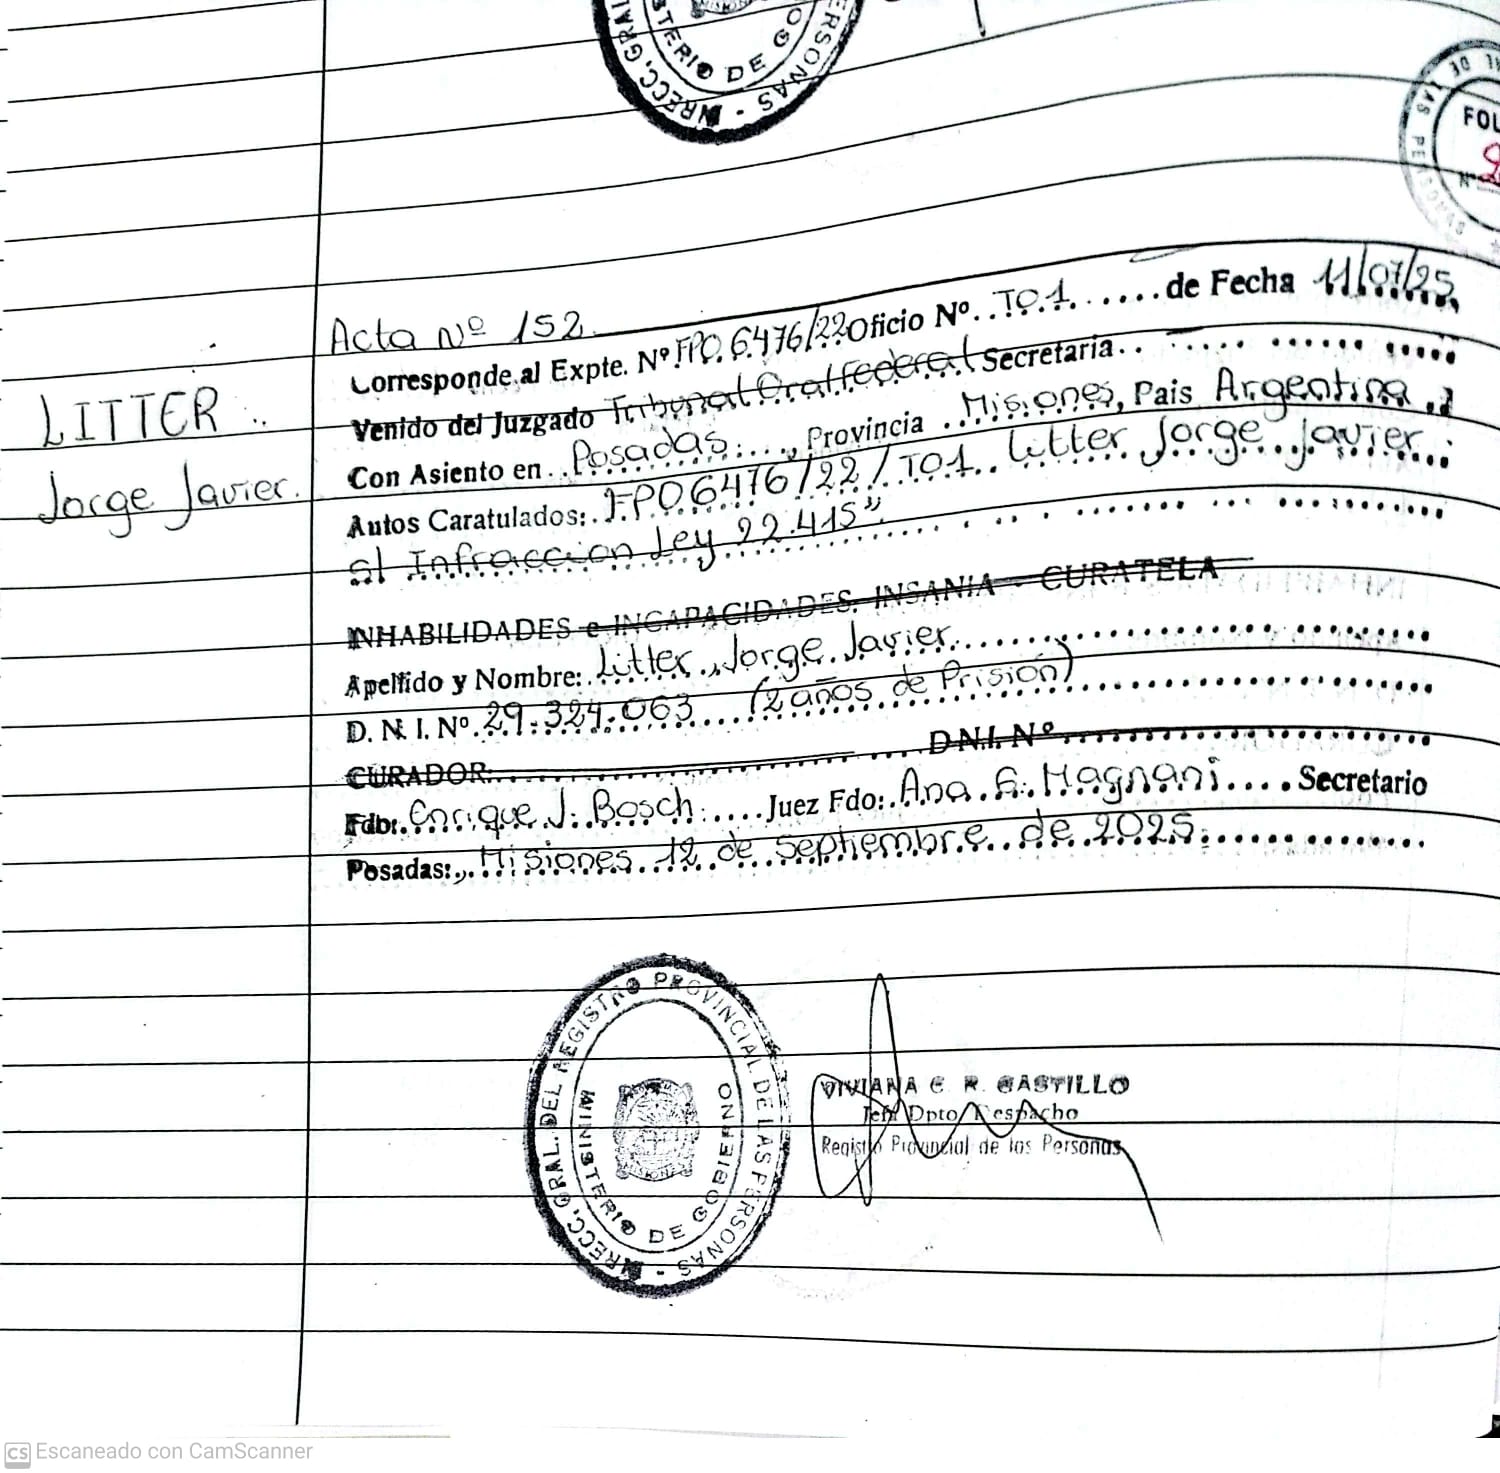 RECC. GRAL
STERIO DE GO
PERSONAS -
FOL
Nº
DE LAS PERSONAS
Acta Nº 152
Corresponde al Expte. Nº FPO. 6476/22 Oficio Nº TO1 de Fecha 11/07/25
Venido del Juzgado Tribunal Oral federal Secretaria
Con Asiento en Posadas, Provincia Misiones, Pais Argentina
Autos Caratulados: FPO6476/22/TO1 Litter Jorge Javier
s/ Infraccion Ley 22.415"
LITTER
Jorge Javier.
INHABILIDADES e INCAPACIDADES. INSANIA - CURATELA
Apellido y Nombre: Litter, Jorge Javier
D. N. I. Nº 29.324.063 (2 años de Prisión)
CURADOR: D.N.I. Nº
Fdo: Enrique J. Bosch Juez Fdo: Ana Magnani Secretario
Posadas:, Misiones 12 de Septiembre de 2025.
DIRECC. GRAL. DEL REGISTRO PROVINCIAL DE LAS PERSONAS -
MINISTERIO DE GOBIERNO
VIVIANA G. R. CASTILLO
Jefe Dpto Despacho
Registro Provincial de las Personas
CS Escaneado con CamScanner